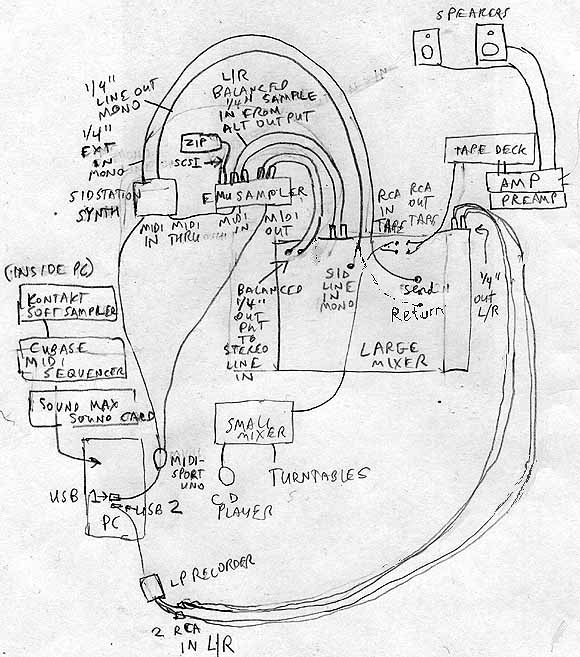 SPEAKERS
1/4"
LINE OUT
MONO
1/4"
EXT
IN
MONO
L/R
BALANCED
1/4" SAMPLE
IN FROM
ALT OUTPUT
ZIP
SCSI
SIDSTATION
SYNTH
EMU SAMPLER
MIDI
IN
MIDI
THRU
MIDI
IN
MIDI
OUT
TAPE DECK
AMP
PREAMP
RCA
IN
TAPE
RCA
OUT
TAPE
(INSIDE PC)
KONTAKT
SOFTSAMPLER
CUBASE
MIDI
SEQUENCER
SOUND MAX
SOUND CARD
BALANCED
1/4"
OUT
PUT
TO
STEREO
LINE
IN
SID
LINE
IN
MONO
Send
Return
1/4"
OUT
L/R
LARGE
MIXER
SMALL
MIXER
MIDI-
SPORT
UNO
CD
PLAYER
TURNTABLES
USB 1
USB 2
PC
LP RECORDER
2 RCA
IN L/R